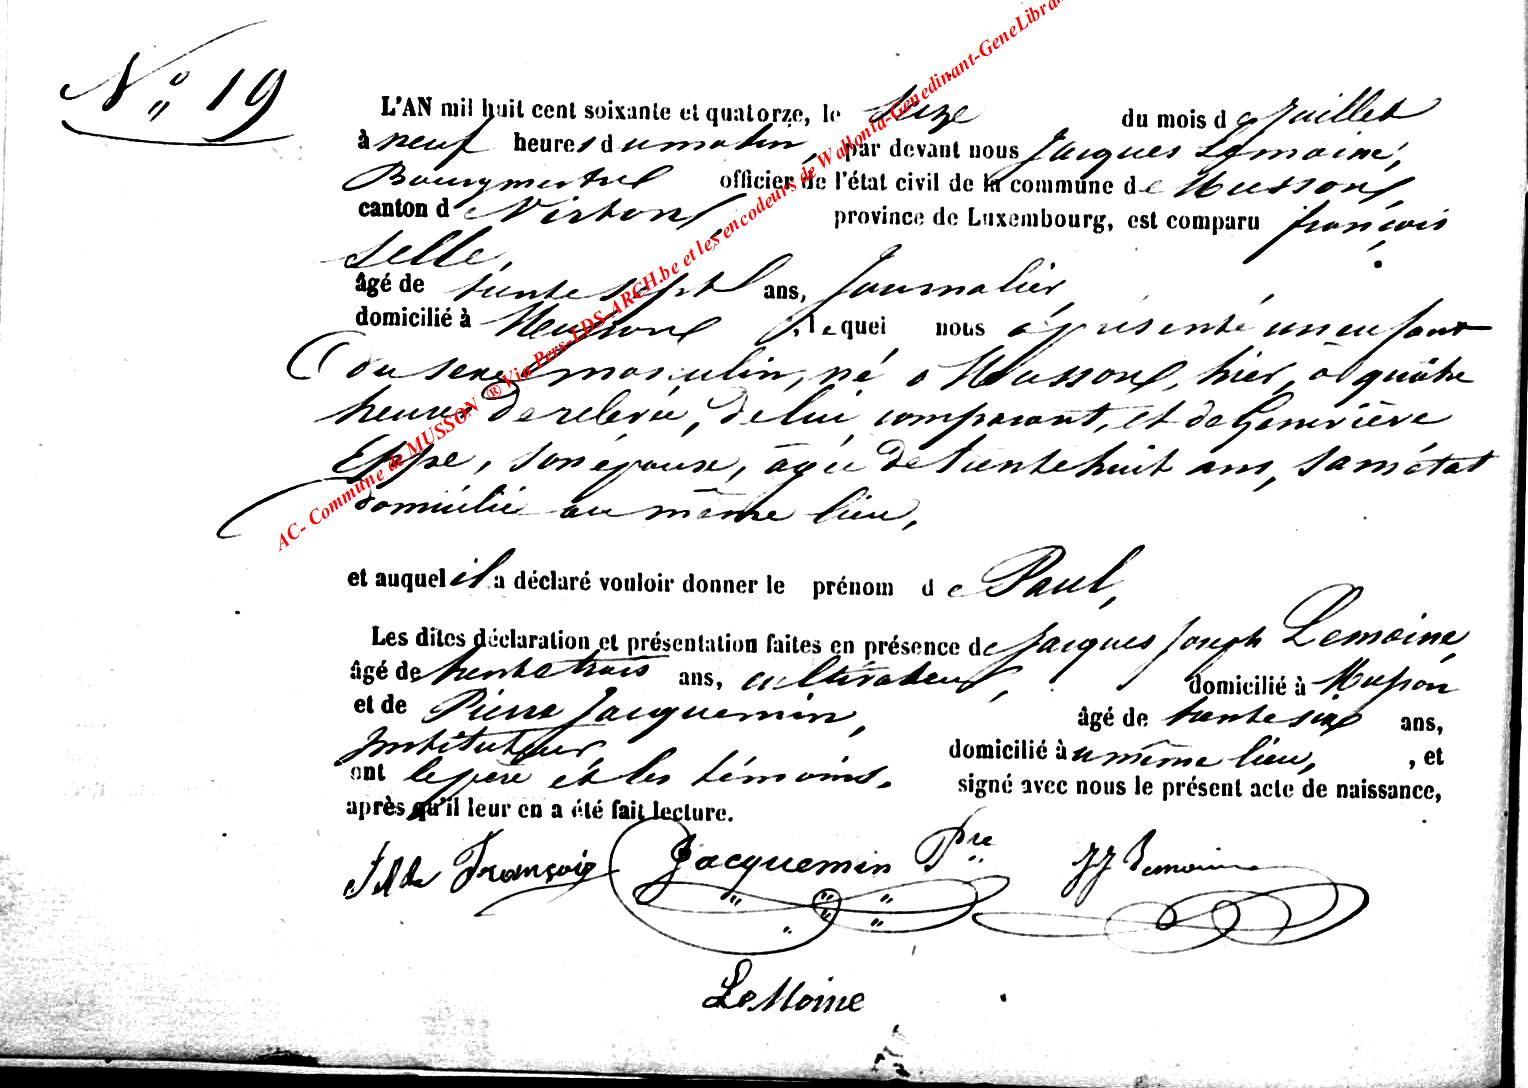 N° 19
L'AN mil huit cent soixante et quatorze, le seize du mois de Juillet
à neuf heures du matin, par devant nous Jacques Lemoine,
Bourgmestre officier de l'état civil de la commune de Musson,
canton de Virton, province de Luxembourg, est comparu françois
Selle,
âgé de trente sept ans, Journalier,
domicilié à Musson, lequel nous a présenté un enfant
du sexe masculin, né à Musson, hier, à quatre
heures de relevée, de lui comparant, et de Geneviève
Eppe, son épouse, âgée de trente huit ans, sans état
domiciliée au même lieu,
et auquel il a déclaré vouloir donner le prénom de Paul,
Les dites déclaration et présentation faites en présence de Jacques Joseph Lemoine,
âgé de trente trois ans, cultivateur, domicilié à Musson
et de Pierre Jacquemin, âgé de trente six ans,
Instituteur domicilié au même lieu, , et
ont le père et les témoins. signé avec nous le présent acte de naissance,
après qu'il leur en a été fait lecture.
François Jacquemin Pre JJ Lemoine
LeMoine
AC- Commune de MUSSON ® Via Pers-LDS-ARCH.be et les encodeurs de Wallonia-Genedinant-GeneLibra